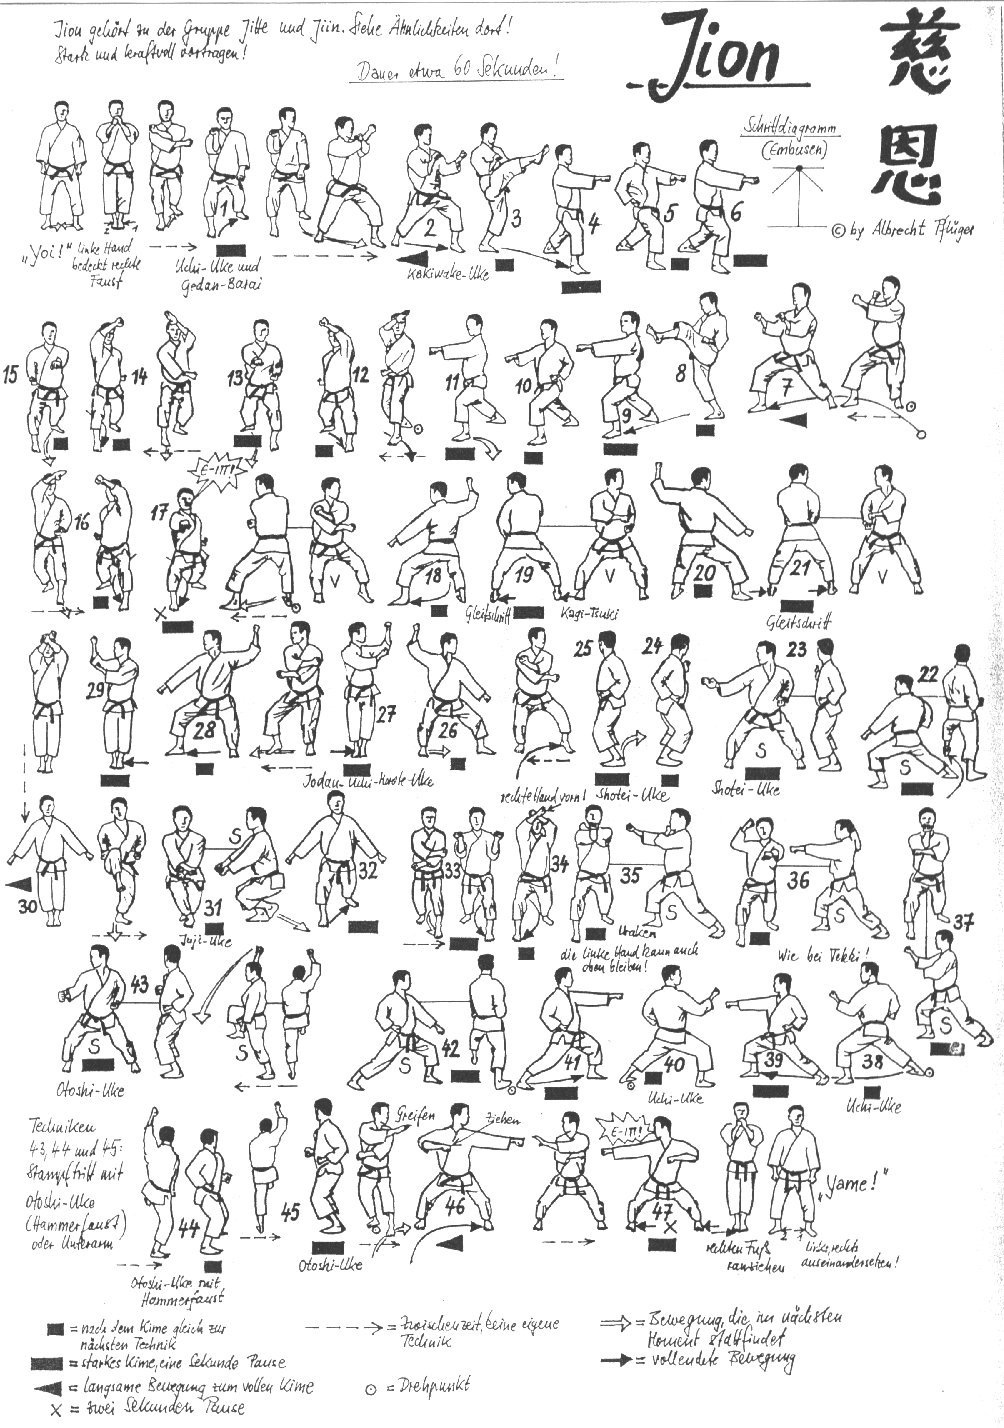 Jion gehört zu der Gruppe Jitte und Jiin. Siehe Ähnlichkeiten dort!
Stark und kraftvoll vortragen!
Dauer etwa 60 Sekunden!
Jion
慈
恩
Schrittdiagramm
(Embusen)
© by Albrecht Pflüger
1
2
3
4
5
6
"Yoi!"
linke Hand
bedeckt rechte
Faust
2 1
Uchi-Uke und
Gedan-Barai
Kakiwake-Uke
15
14
13
12
11
10
9
8
7
E-iTi!
16
17
V
18
19
V
20
21
V
X
Gleitschritt
Kagi-Tsuki
Gleitschritt
29
28
27
26
25
24
23
22
S
S
Jodan-Uchi-Konate-Uke
rechte Hand vorn!
Shotei-Uke
Shotei-Uke
30
31
S
32
33
34
35
S
36
S
37
S
Juji-Uke
Uraken
die linke Hand kann auch
oben bleiben!
Wie bei Tekki!
43
S
S
42
S
41
40
39
38
Otoshi-Uke
Uchi-Uke
Uchi-Uke
Techniken
43, 44 und 45:
Stampftritt mit
Otoshi-Uke
(Hammerfaust)
oder Unterarm
44
45
Greifen
ziehen
46
E-iTi!
47
X
"Yame!"
2 1
Otoshi-Uke mit
Hammerfaust
Otoshi-Uke
rechten Fuß
ranziehen
links, rechts
auseinandersetzen!
= nach dem Kime gleich zur
nächsten Technik
= starkes Kime, eine Sekunde Pause
= langsame Bewegung zum vollen Kime
X = zwei Sekunden Pause
= Zwischenzeit, keine eigene
Technik
= Drehpunkt
= Bewegung, die im nächsten
Moment stattfindet
= vollendete Bewegung